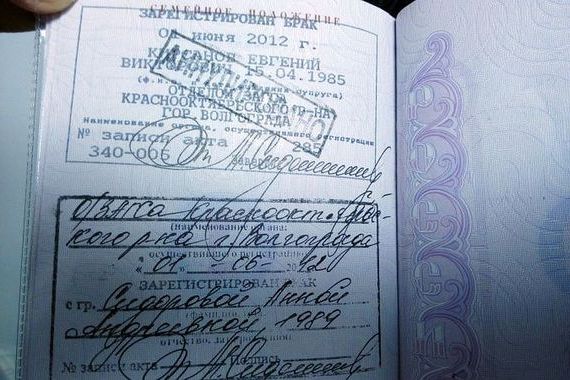 СЕМЕЙНОЕ ПОЛОЖЕНИЕ
ЗАРЕГИСТРИРОВАН БРАК
июня 2012 г.
ЕВГЕНИЙ
15.04.1985
супруга)
ОТДЕЛ
КРАСНООКТЯБРЬСКОГО Р-НА
ГОР. ВОЛГОГРАДА
Наименование органа, осуществившего регистрацию
№ записи акта 285
340-006
ОЗАГСа Краснооктябрь-
ского р-на г. Волгограда
(наименование органа,
осуществившего регистрацию)
" 01 " - 06 -
ЗАРЕГИСТРИРОВАН БРАК
с гр. Сидоровой Анной
Андреевной, 1989
отчество, дата рождения)
№ записи акта Подпись